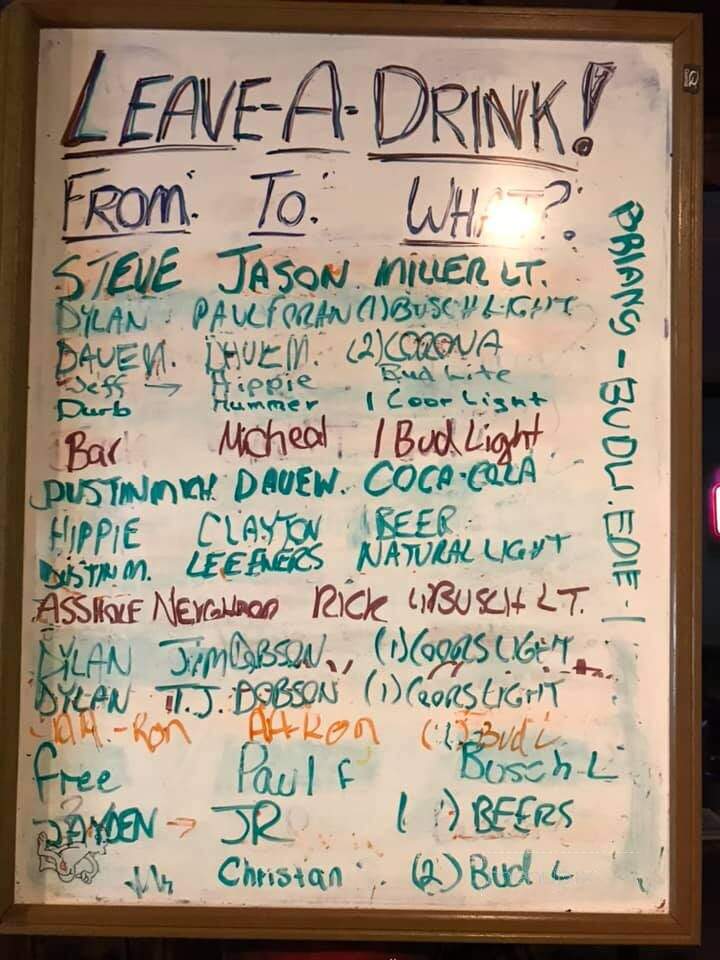 LEAVE-A-DRINK!
FROM: TO: WHAT?:
STEVE JASON MILLER LT.
DYLAN PAUL FORAN (1) BUSCH LIGHT
DAVE M. DAVE M. (2) CORONA
Jeff → Hippie Bud Lite
Durb Hummer 1 Coor Light
Bar Micheal 1 Bud Light
DUSTIN MKH DAVE W. COCA-COLA
HIPPIE CLAYTON 1 BEER
DUSTIN M. LEEENERS NATURAL LIGHT
ASSHOLE NEIGHBOR RICK (1) BUSCH LT.
DYLAN JIM DOBSON (1) COORS LIGHT
DYLAN T.J. DOBSON (1) COORS LIGHT
AA-Ron AA-Ron (1) Bud L
free Paul F Busch L
JAYDEN → JR (1) BEERS
Christan (2) Bud L
BUDL. EDIE-1